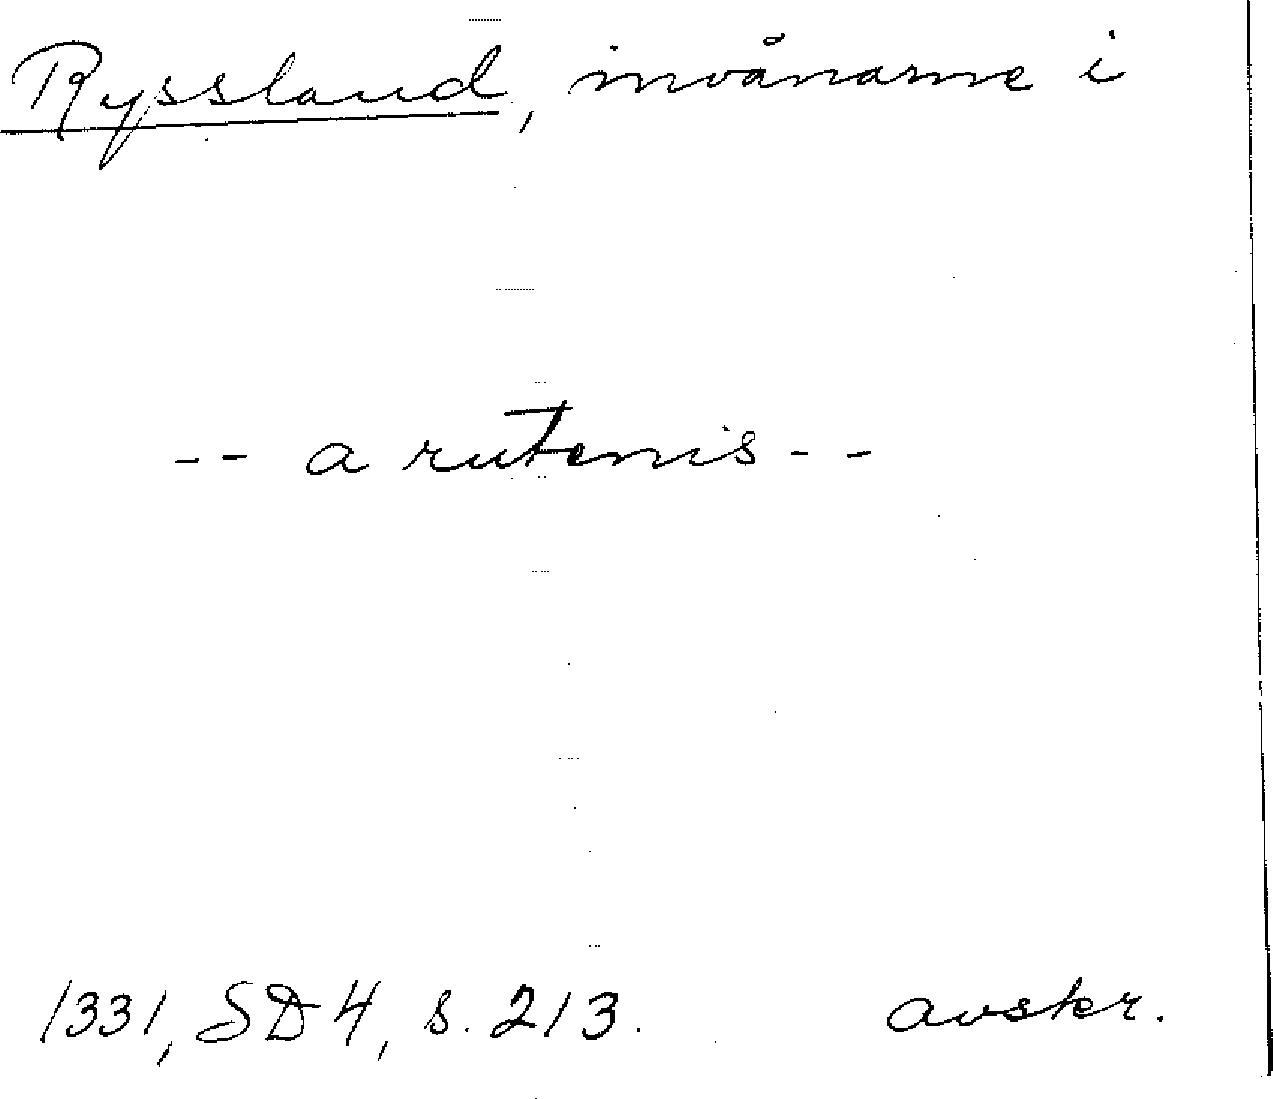 Ryssland, invånarne i
-- a rutenis --
1331, SD 4, s. 213. avskr.